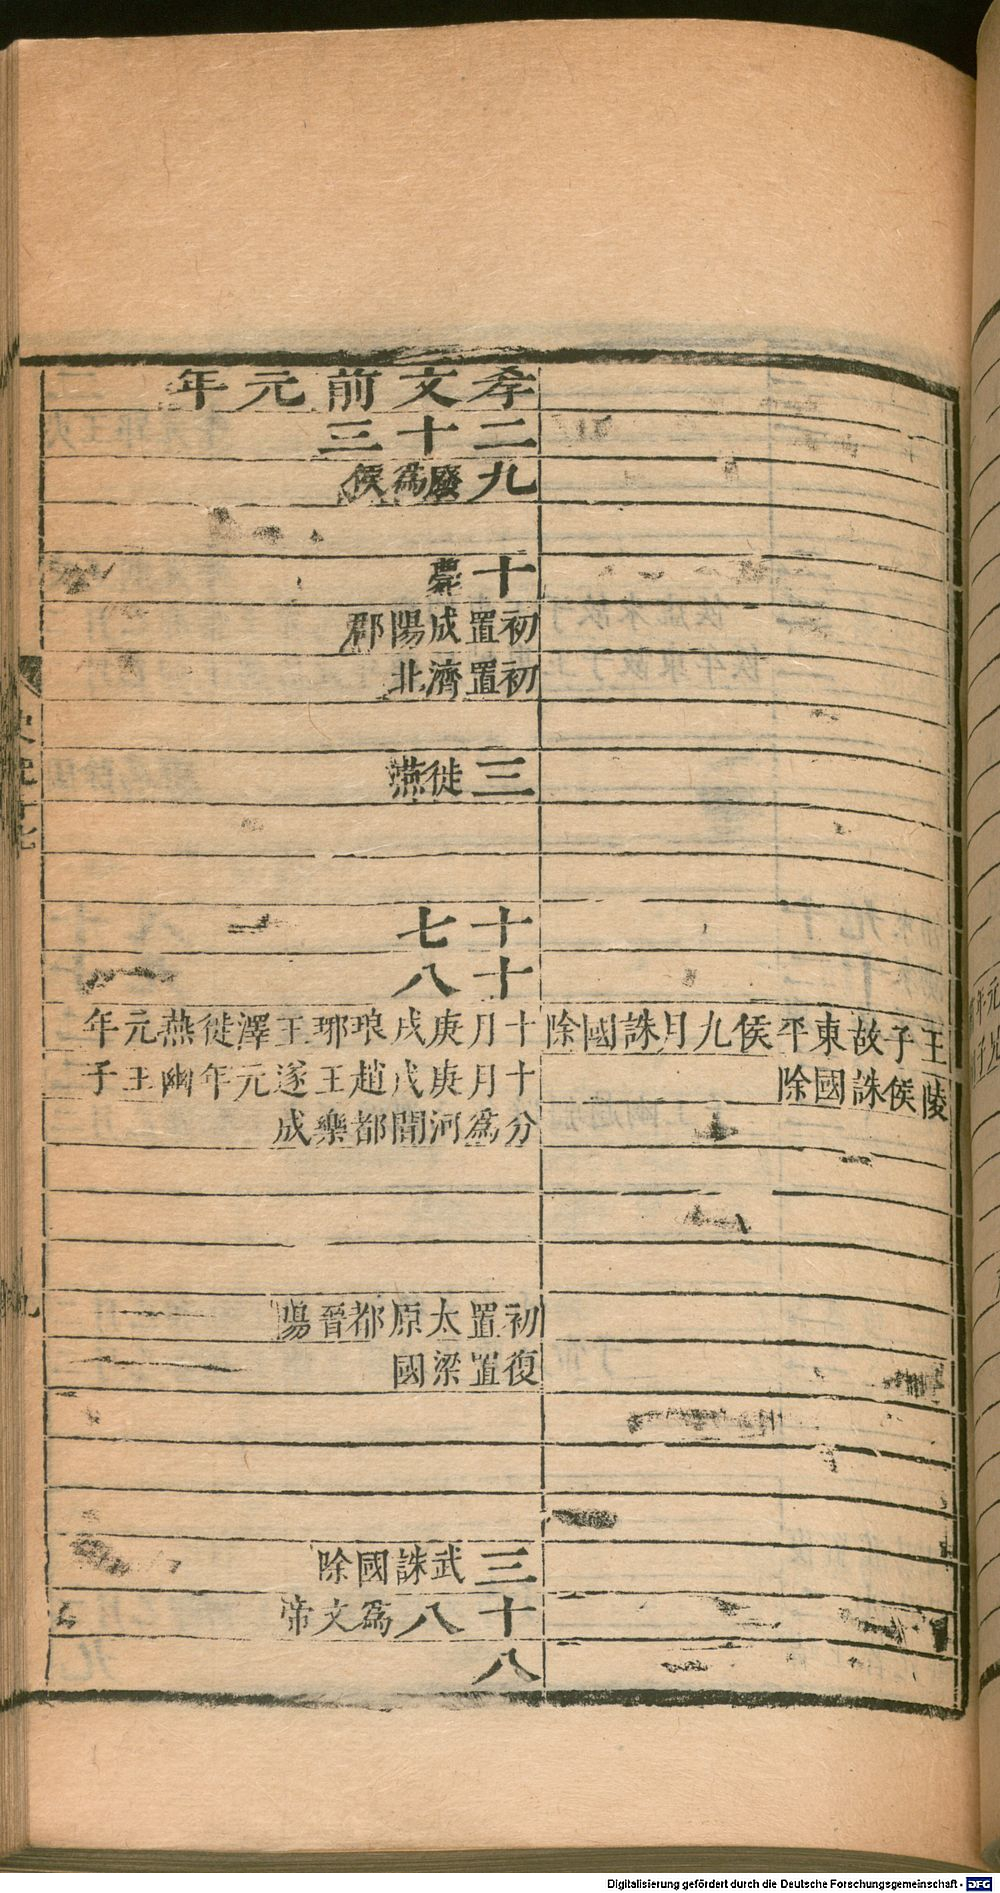 王子故東平侯九月誅國除
陵侯誅國除
孝文前元年
二十三
九廢爲侯
十薨
初置成陽郡
初置濟北
三徙燕
十七
十八
十月庚戌琅琊王澤徙燕元年
十月庚戌趙王遂元年幽王子
分爲河間都樂成
初置太原都晉陽
復置梁國
三武誅國除
十八爲文帝
八
Digitalisierung gefördert durch die Deutsche Forschungsgemeinschaft - DFG